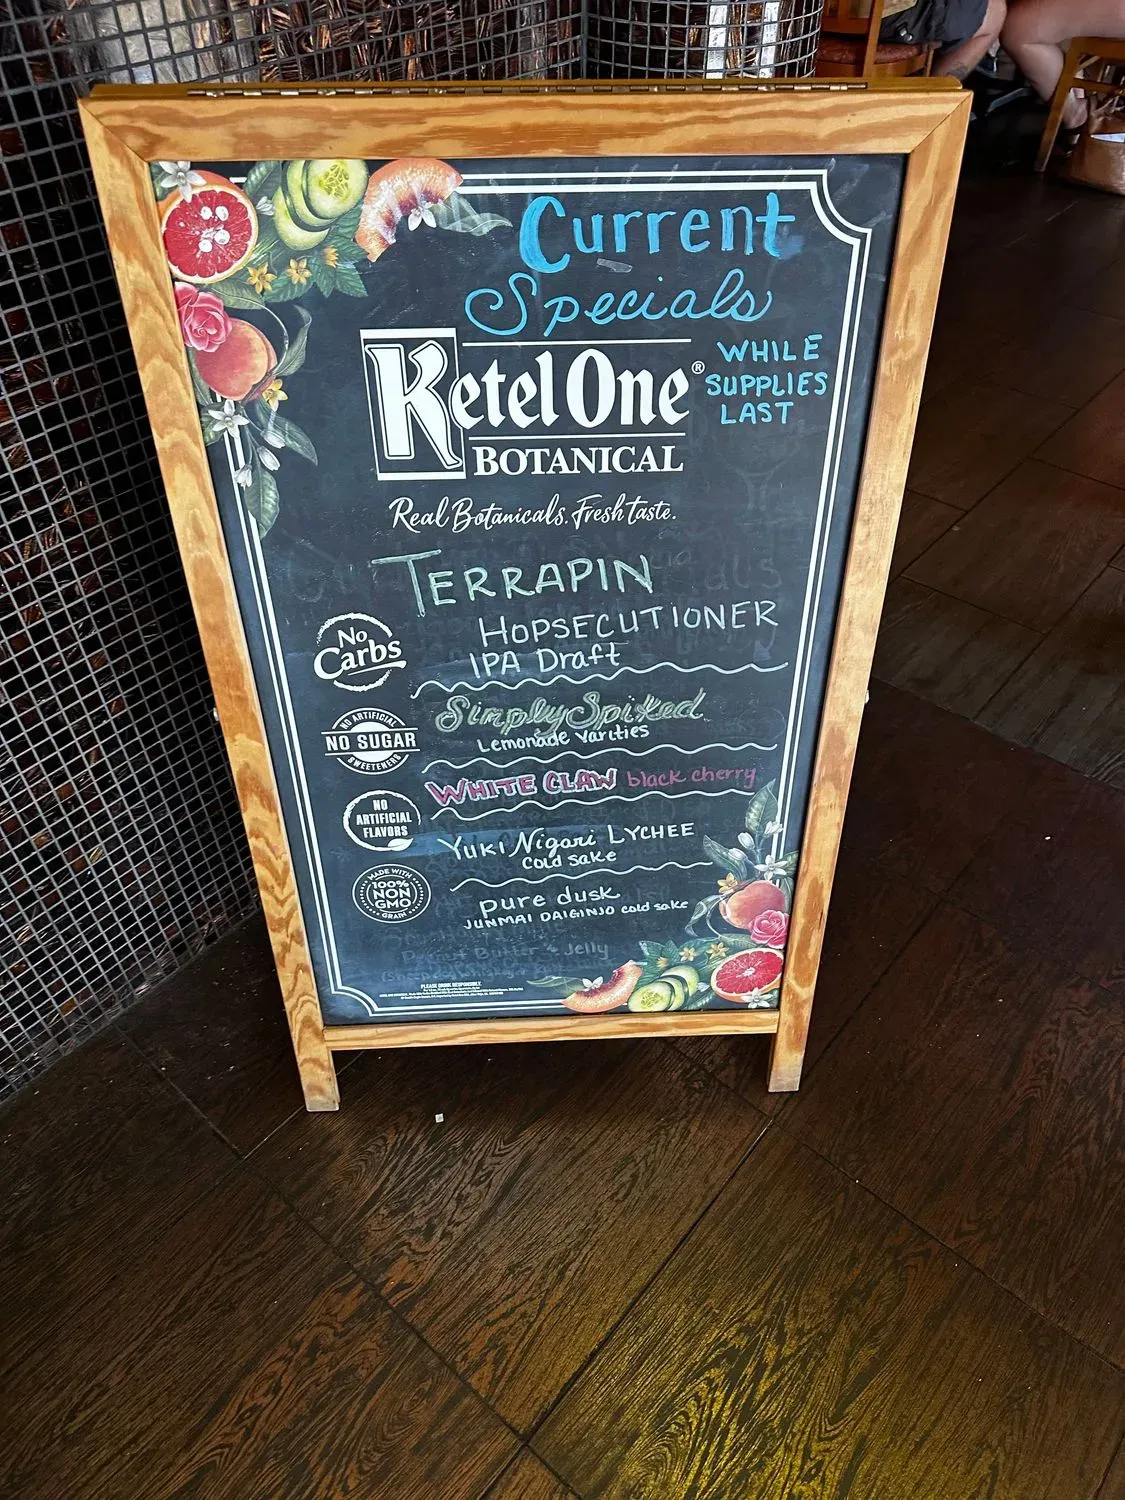 Current
Specials
WHILE
SUPPLIES
LAST
Ketel One®
BOTANICAL
Real Botanicals. Fresh taste.
TERRAPIN
HOPSECUTIONER
IPA Draft
No
Carbs
Simply Spiked
Lemonade varities
NO ARTIFICIAL
NO SUGAR
SWEETENERS
WHITE CLAW black cherry
NO
ARTIFICIAL
FLAVORS
Yuki Nigori LYCHEE
cold sake
MADE WITH
100%
NON
GMO
GRAIN
pure dusk
JUNMAI DAIGINJO cold sake
Butter & Jelly
PLEASE DRINK RESPONSIBLY.